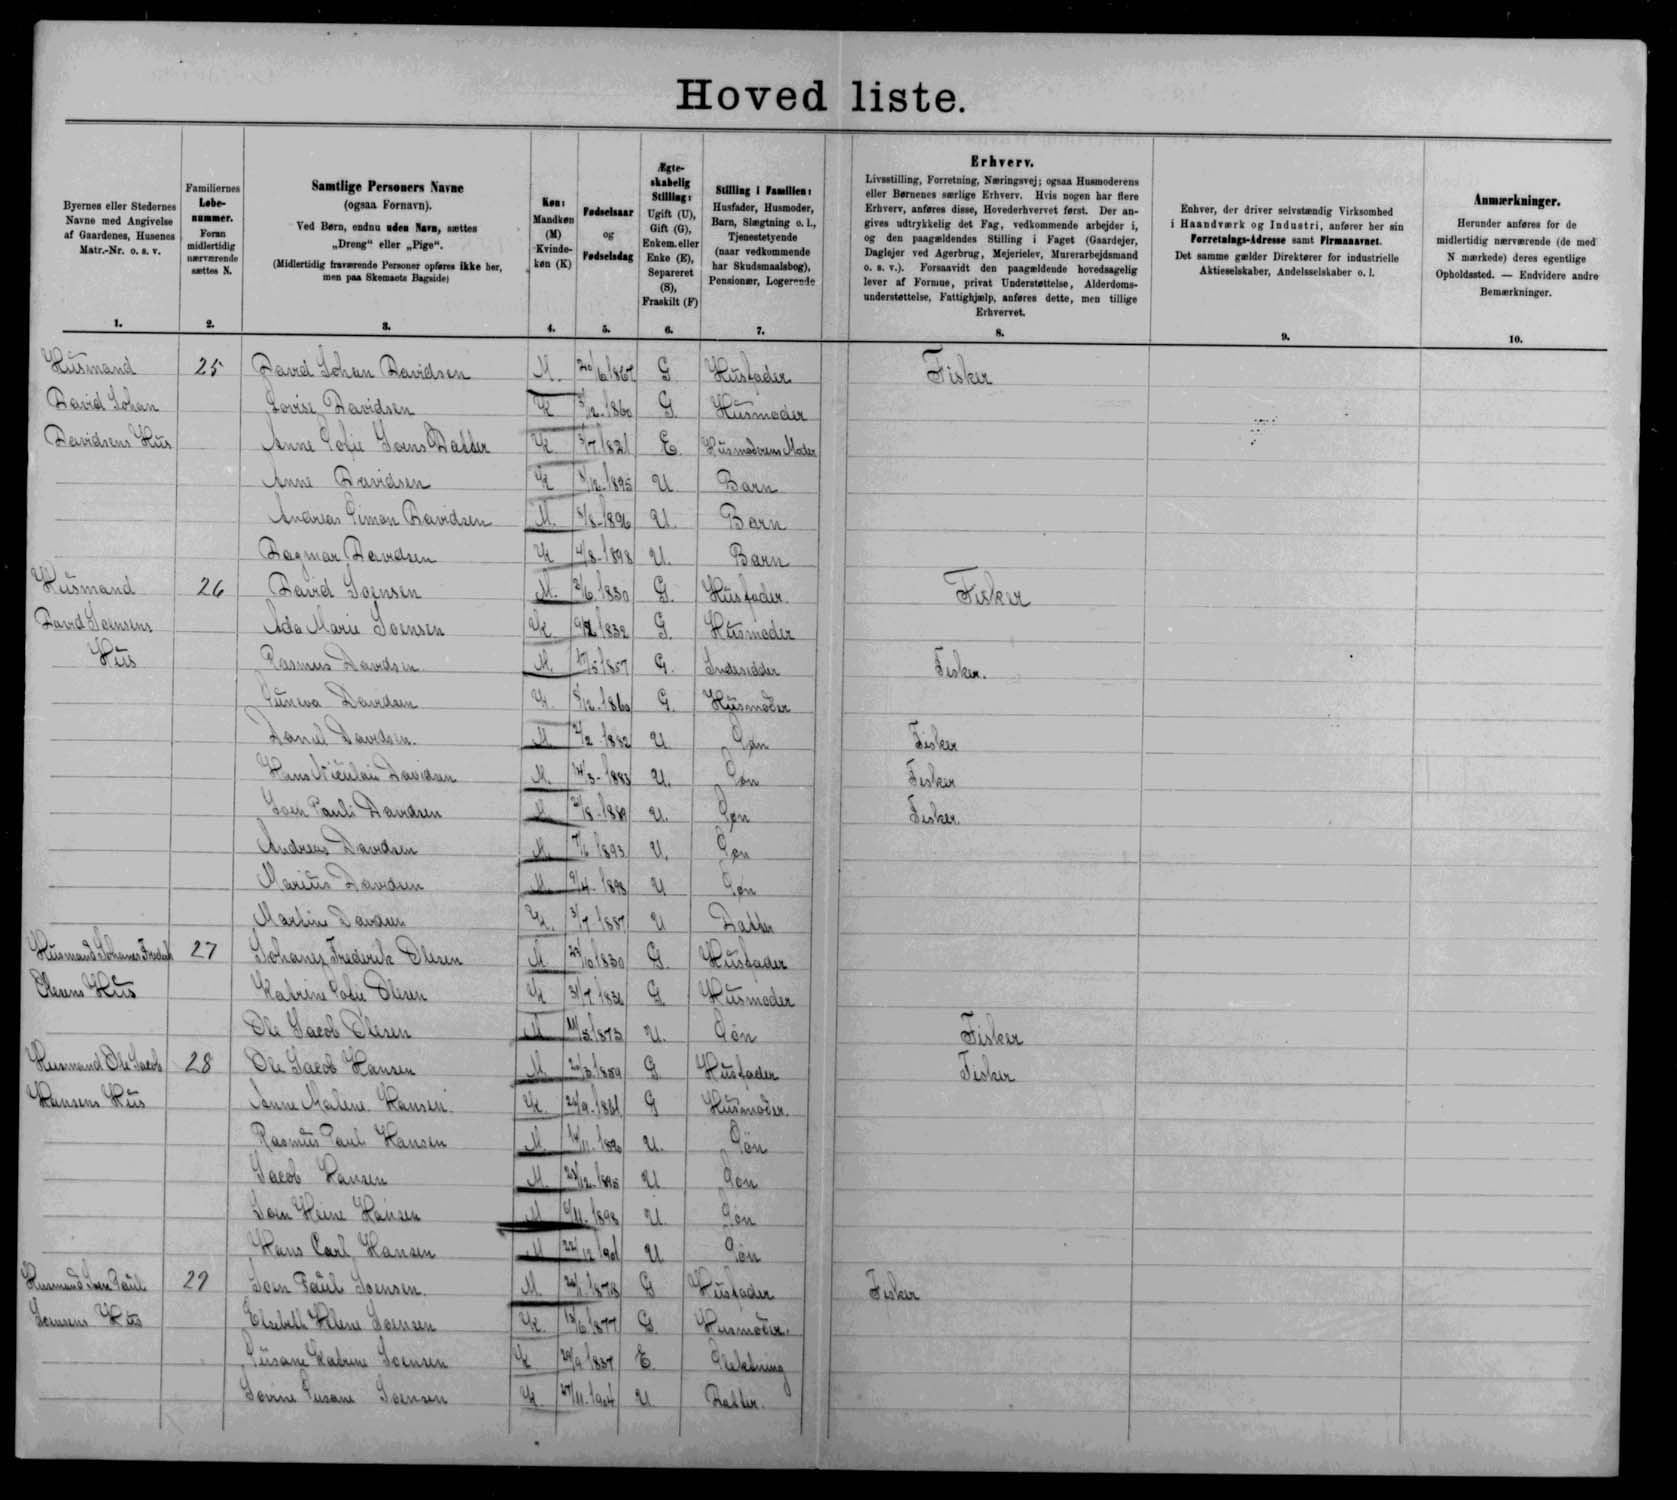 Hovedliste.
Byernes eller Stedernes
Navne med Angivelse
af Gaardenes, Husenes
Matr.-Nr. o. s. v.
1.
Familiernes
Løbe-
nummer.
Foran
midlertidig
nærværende
sættes N.
2.
Samtlige Personers Navne
(ogsaa Fornavn).
Ved Børn, endnu uden Navn, sættes
„Dreng“ eller „Pige“.
(Midlertidig fraværende Personer opføres ikke her,
men paa Skemaets Bagside)
3.
Køn:
Mandkøn
(M)
Kvinde-
køn (K)
4.
Fødselsaar
og
Fødselsdag
5.
Ægte-
skabelig
Stilling:
Ugift (U),
Gift (G),
Enkem. eller
Enke (E),
Separeret
(S),
Fraskilt (F)
6.
Stilling i Familien:
Husfader, Husmoder,
Barn, Slægtning o. l.,
Tjenestetyende
(naar vedkommende
har Skudsmaalsbog),
Pensionær, Logerende
7.
Erhverv.
Livsstilling, Forretning, Næringsvej; ogsaa Husmoderens
eller Børnenes særlige Erhverv. Hvis nogen har flere
Erhverv, anføres disse, Hovederhvervet først. Der an-
gives udtrykkelig det Fag, vedkommende arbejder i,
og den paagældendes Stilling i Faget (Gaardejer,
Daglejer ved Agerbrug, Mejerielev, Murerarbejdsmand
o. s. v.). Forsaavidt den paagældende hovedsagelig
lever af Formue, privat Understøttelse, Alderdoms-
understøttelse, Fattighjælp, anføres dette, men tillige
Erhvervet.
8.
Enhver, der driver selvstændig Virksomhed
i Haandværk og Industri, anfører her sin
Forretnings-Adresse samt Firmanavnet.
Det samme gælder Direktører for industrielle
Aktieselskaber, Andelsselskaber o. l.
9.
Anmærkninger.
Herunder anføres for de
midlertidig nærværende (de med
N mærkede) deres egentlige
Opholdssted. — Endvidere andre
Bemærkninger.
10.
Husmand 25 David Johan Davidsen M. 20/6 1867 G. Husfader Fisker
David Johan Lovise Davidsen K 1860 G. Husmoder
Davidsens Hus Anne Sofie Joens Datter K 3/7 1821 E. Husmoderens Moder
Anne Davidsen K 8/12-1895 U. Barn
Andreas Simon Davidsen M. 8/8-1896 U. Barn
Dagmar Davidsen K 4/8-1898 U. Barn
Husmand 26 David Joensen M. 2/6 1830 G. Husfader. Fisker
David Joensens Ada Marie Joensen K 1832 G. Husmoder
Hus Rasmus Davidsen M. 27/5 1857 G. Indesidder Fisker.
Suneva Davidsen K. 8/12-1860 G. Husmoder
Daniel Davidsen. M. 2/2-1882 U. Søn Fisker
Hans Niculai Davidsen M. 14/3-1883 U. Søn Fisker
Joen Pauli Davidsen M 2/8-1889 U. Søn Fisker.
Andreas Davidsen M. 1893 U. Søn
Marius Davidsen M. 9/4-1898 U Søn
Martine Davidsen K. 3/7-1887 U Datter
Husmand Johanes Frederik 27 Johanes Frederik Olesen M 23/6 1830 G. Husfader
Olesens Hus Katrine Sofie Olesen K 31/7 G. Husmoder
Ole Jacob Olesen M 1873 U. Søn Fisker
Husmand Ole Jacob 28 Ole Jacob Hansen M. 1859 G. Husfader Fisker
Hansens Hus Anne Malene Hansen K. 24/9-1861 G Husmoder.
Rasmus Paul Hansen M. 14/11. U. Søn
Jacob Hansen M. 23/12-1895 U Søn
Joen Heine Hansen M 9/11-1898 U. Søn
Hans Carl Hansen M 22/12 1901 U Søn
Husmand Joen Paul 29 Joen Paul Joensen. M 1878 G Husfader Fisker
Joensens Hus Elsebeth Helene Joensen K. 13/6 1877 G. Husmoder.
Susane Katrine Joensen K 29/9 1837 E. Slektning
Jovine Susane Joensen K. 27/11. 1904 U Datter.